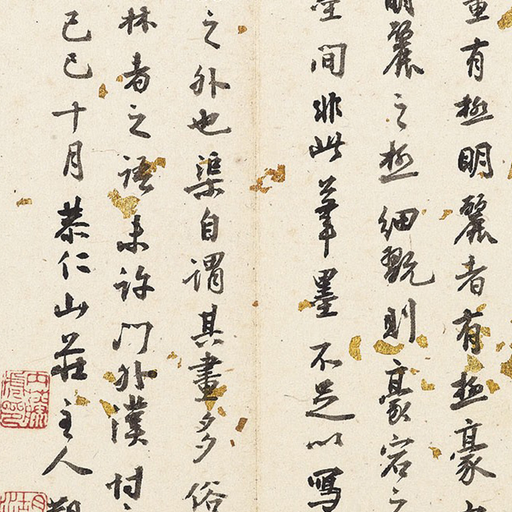 有極明麗者有極豪
麗之極細翫則豪宕之
間非此筆墨不足以寫
之外也渠自謂其畫多俗
林者之語未許門外漢忖
己巳十月恭仁山莊主人